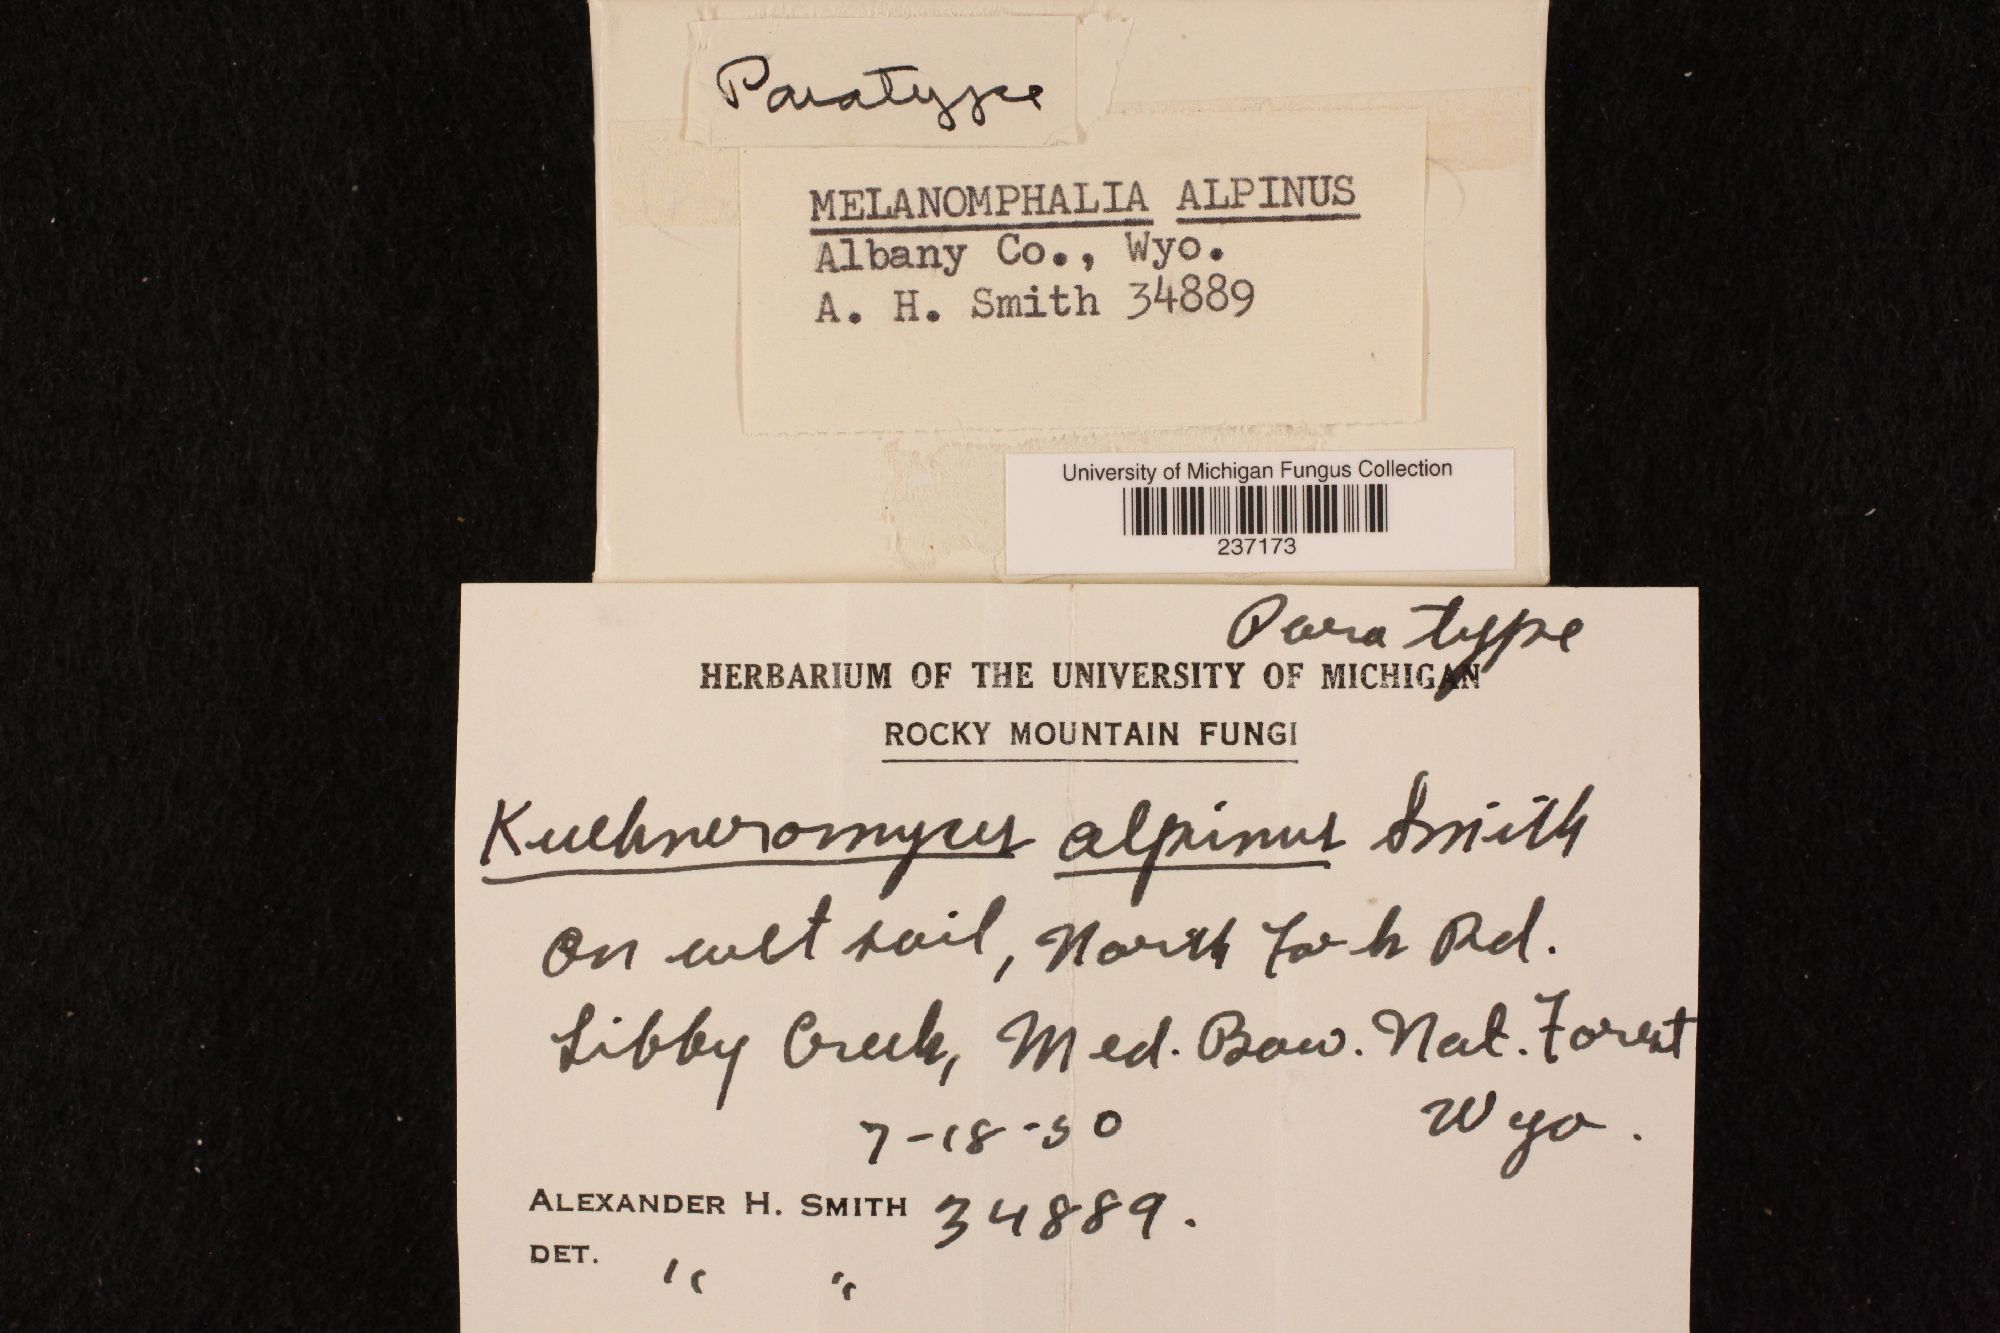 Paratype
MELANOMPHALIA ALPINUS
Albany Co., Wyo.
A. H. Smith 34889
University of Michigan Fungus Collection
237173
Para type
HERBARIUM OF THE UNIVERSITY OF MICHIGAN
ROCKY MOUNTAIN FUNGI
Kuehneromyces alpinus Smith
On wet soil, North Fork Rd.
Libby Creek, Med. Bow. Nat. Forest
7-18-50 Wyo.
ALEXANDER H. SMITH 34889.
DET. " "